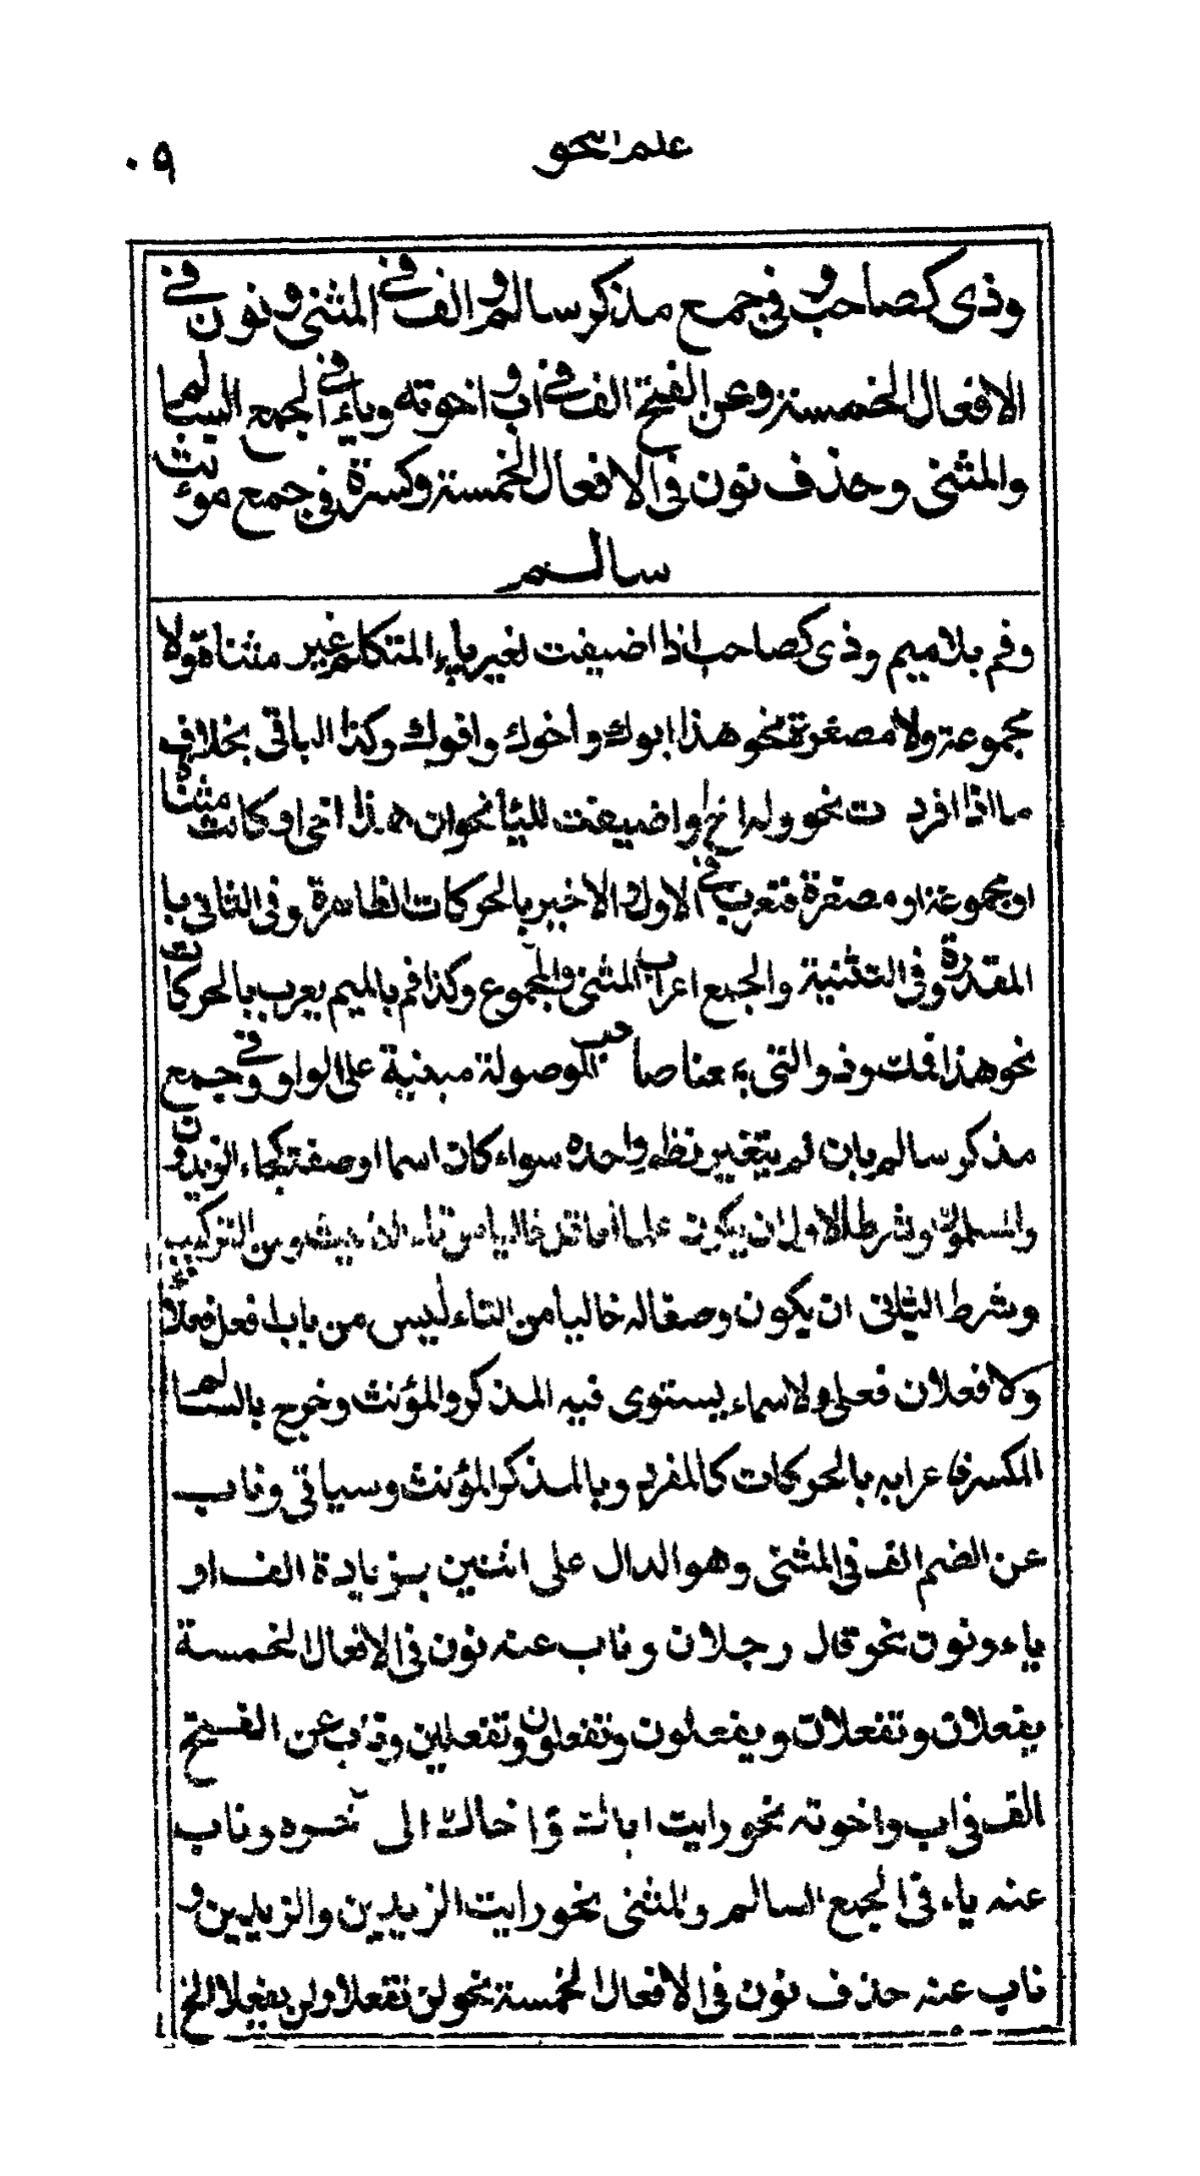 علم النحو
٠٩
وذى كصاحب و فى جمع مذكر سالم و الف فى المثنى و نون فى
الافعال الخمسة وعن الفتح الف فى اب و اخوته وياء فى الجمع السالم
والمثنى وحذف نون فى الافعال الخمسة وكسرة فى جمع مؤنث
سالم
وفم بلا ميم وذى كصاحب اذا اضيفت لغير ياء المتكلم غير مثناة ولا
مجموعة ولا مصغرة نحو هذا ابوك وأخوك وافوك وكذا الباقى بخلاف
ما اذا افردت نحو وله اخ او اضيفت للياء نحو ان هذا اخى او كانت مثناة
او مجموعة او مصغرة فتعرب فى الاول والاخير بالحركات الظاهرة وفى الثانى با
المقدرة وفى التثنية والجمع اعراب المثنى والمجموع وكذا فم بالميم يعرب بالحركات
نحو هذا فمك وذو التى بمعنا صاحب الموصولة مبنية على الواو و فى جمع
مذكر سالم بان لم يتغير نظم واحده سواء كان اسما او صفة كجاء الزيدون
والمسلمون وشرط الاول ان يكون علما خاليا من تاء ومن التركيب
وشرط الثانى ان يكون وصفا له خاليا من التاء ليس من باب افعل فعلاء
ولا فعلان فعلى ولا سماء يستوى فيه المذكر والمؤنث وخرج بالسالم
المكسر فاعرابه بالحركات كالمفرد وبالمذكر المؤنث وسياتى وناب
عن الضم الف فى المثنى وهو الدال على اثنين بزيادة الف او
ياء ونون نحو قال رجلان وناب عنه نون فى الافعال الخمسة
يفعلان وتفعلان ويفعلون وتفعلون وتفعلين وناب عن الفتح
الف فى اب واخوته نحو رايت اباك واخاك الى آخره وناب
عنه ياء فى الجمع السالم والمثنى نحو رايت الزيدين والزيدين و
ناب عنه حذف نون فى الافعال الخمسة نحو لن تفعلا ولن يفعلا الخ